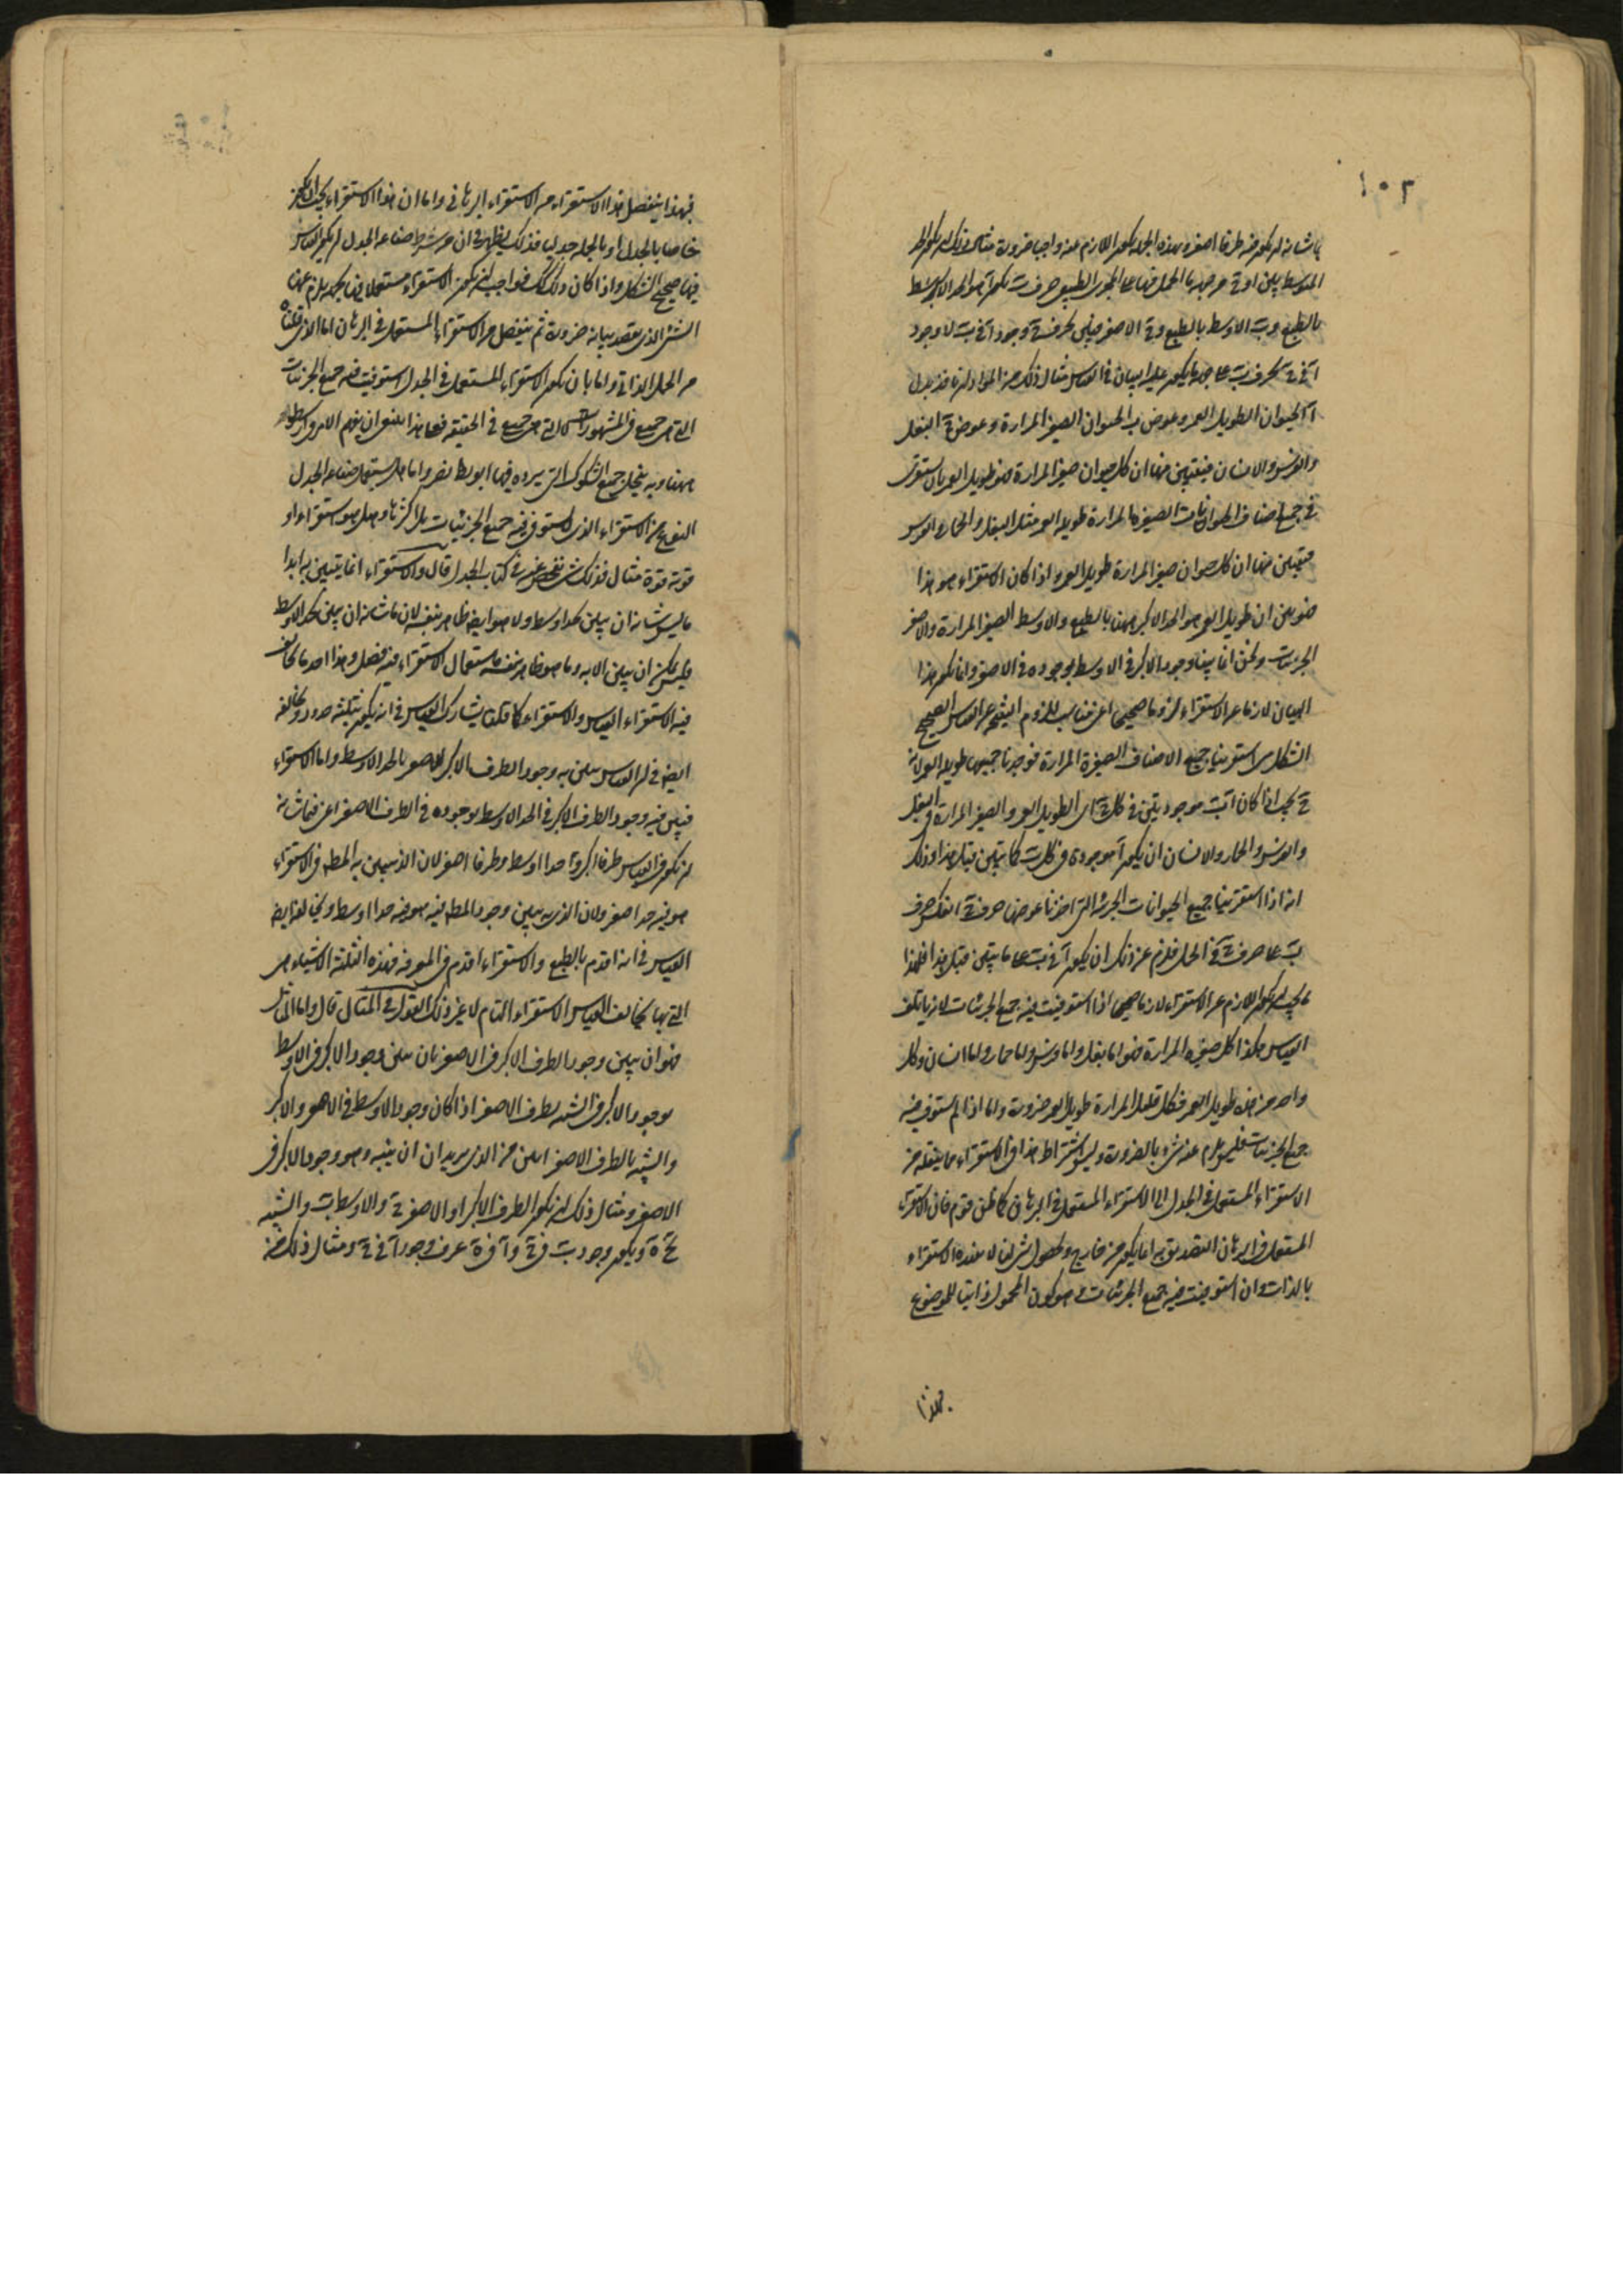 ١٠٢
ما شانه ان يكون فيه طرفا اصغر وبهذه الجملة يكون اللازم عنه واجبا ضرورة مثال ذلك ان يكون الحد
المتوسط بين او ح من جهة ما الحمل فيها على المجرى الطبيعي حرف ب يكون آ هو الحد الاكبر
بالطبع وب الاوسط بالطبع وح الاصغر فيبين بحرف ح وجود آ في ب لا وجود
آ في ح بحرف ب على جهة ما يكون عليه البيان في القياس مثال ذلك من المواد ان ناخذ بدل
آ الحيوان الطويل العمر وعوض ب الحيوان الصغير المرارة وعوض ح البغل
والفرس والانسان فيتبين منها ان كل حيوان صغير المرارة فهو طويل العمر بان نستقري
في جميع اصناف الحيوانات الصغيرة المرارة طويلة العمر مثل البغل والحمار والفرس
فيتبين منها ان كل حيوان صغير المرارة طويل العمر واذا كان الاستقراء هو هذا
فهو بين ان طويل العمر هو الحد الاكبر ههنا بالطبع والاوسط الصغير المرارة والاصغر
الجزئيات ونحن انما بينا وجود الاكبر في الاوسط بوجوده في الاصغر وانما يكون هذا
البيان لازما عن الاستقراء لزوما صحيحا اعني مناسب للزوم النتيجة عن القياس الصحيح
الشكل متى استقرينا جميع الاصناف الصغيرة المرارة فوجدنا جميعها طويلة العمر لانه
يجب اذا كان آ ب موجودتين في كل ح اى الطويل العمر والصغير المرارة في البغل
والفرس والحمار والانسان ان يكون آ موجودة في كل ب كما تبين قبل هذا وذلك
انه اذا استقرينا جميع الحيوانات الجزئية التي اخذنا عوضها حرف ح انعكس حرف
ب على حرف ح في الحمل فلزم عن ذلك ان يكون آ في ب على ما تبين قبل هذا فلهذا
ما يجب ان يكون اللازم عن الاستقراء لازما صحيحا اذا استوفيت فيه جميع الجزئيات لانه ياتلف
القياس هكذا كل صغير المرارة فهو اما بغل واما فرس واما حمار واما انسان وكل
واحد من هذه طويل العمر فكل قليل المرارة طويل العمر ضرورة واما اذا لم تستوف فيه
جميع الجزئيات فليس يلزم عنه شيء بالضرورة وليس اشتراط هذا في الاستقراء مما ينقله من
الاستقراء المستعمل في الجدل الى الاستقراء المستعمل في البرهان كما ظن قوم فان الاستقراء
المستعمل في البرهان التصديق به انما يكون من خارج وحصول شيء لنا لا عند هذا الاستقراء
بالذات وان استوفيت فيه جميع الجزئيات وهو كون المحمول ذاتيا للموضوع
فبهذا
فبهذا ينفصل هذا الاستقراء من الاستقراء البرهاني واما ان هذا الاستقراء يجب ان يكون
خاصا بالجدل او بالجملة جدليا فذلك يظهر في ان من شرط صناعة الجدل ان يكون القياس
فيها صحيح الشكل واذا كان ذلك كذلك فواجب ان يكون الاستقراء مستعملا فيها بجهة يلزم عنها
الشيء الذي يقصد بيانه ضرورة ثم ينفصل من الاستقراء المستعمل في البرهان اما الذي قلناه
من الحمل الذاتي واما بان يكون الاستقراء المستعمل في الجدل استوفيت فيه جميع الجزئيات
التي هي جميع في المشهور لا التي هي جميع في الحقيقة فعلى هذا ينبغي ان يفهم الامر عن ارسطو
ههنا وبه ينحل جميع الشكوك التي يردده فيها ابو نصر واما هل تستعمل صناعة الجدل
النوع من الاستقراء الذي لم تستوف فيه جميع الجزئيات بل اكثرها وهل هو استقراء او
قوته قوة مثال فذلك شيء نفحص عنه في كتاب الجدل قال والاستقراء انما يتبين به ابدا
ما ليس شانه ان يبين بحد اوسط ولا هو ايضا ظاهر بنفسه لان ما شانه ان يبين بحد اوسط
فليس يمكن ان يبين الا به وما هو ظاهر بنفسه فاستعمال الاستقراء فيه فضل وهذا احد ما يخالف
فيه الاستقراء القياس والاستقراء كما قلنا يشارك القياس في انه يكون بثلثة حدود ويخالفه
ايضا في ان القياس يبين به وجود الطرف الاكبر للاصغر بالحد الاوسط واما الاستقراء
فيبين فيه وجود الطرف الاكبر في الحد الاوسط بوجوده في الطرف الاصغر اعني فيما شانه
ان يكون في القياس طرفا اكبر وحدا اوسط وطرفا اصغر لان الذي يبين به المطلوب في الاستقراء
هو فيه حد اصغر ولان الذي به يبين وجود المطلوب فيه هو فيه حدا اوسط ويخالف ايضا
القياس في انه اقدم بالطبع والاستقراء اقدم في المعرفة فهذه الثلثة الاشياء هي
التي بها يخالف القياس الاستقراء التام لا غير ذلك القول في المثال قال واما المثال
فهو ان يبين وجود الطرف الاكبر في الاصغر بان يبين وجود الاكبر في الاوسط
بوجود الاكبر في الشبيه بطرف الاصغر اذا كان وجود الاوسط في الاصغر والاكبر
والشبيه بالطرف الاصغر ابين من الذي يريد ان يبينه وهو وجود الاكبر في
الاصغر ومثال ذلك ان يكون الطرف الاكبر آ والاصغر ح والاوسط ب والشبيه
بح ة ويكون وجود ب في ح وآ في ة اعرف من وجود آ في ح ومثال ذلك من